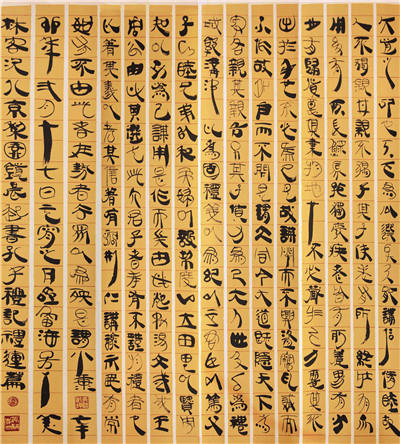 大道之行也天下為公選賢與能講信修睦故
人不獨親其親不獨子其子使老有所終壯有所
用幼有所長矜寡孤獨廢疾者皆有所養男有
分女有歸貨惡其棄於地也不必藏於己力惡其不
出於身也不必為己是故謀閉而不興盜竊亂賊而不作
故外戶而不閉是謂大同今大道既隱天下為
家各親其親各子其子貨力為己大人世及以為禮
城郭溝池以為固禮義以為紀以正君臣以篤父
子以睦兄弟以和夫婦以設制度以立田里以賢勇
知以功為己故謀用是作而兵由此起禹湯文武成王
周公由此其選也此六君子者未有不謹於禮者也
以著其義以考其信著有過刑仁講讓示民有常
如有不由此者在勢者去眾以為殃是謂小康辛
卯年十七日月
北京書孔子禮記禮運篇